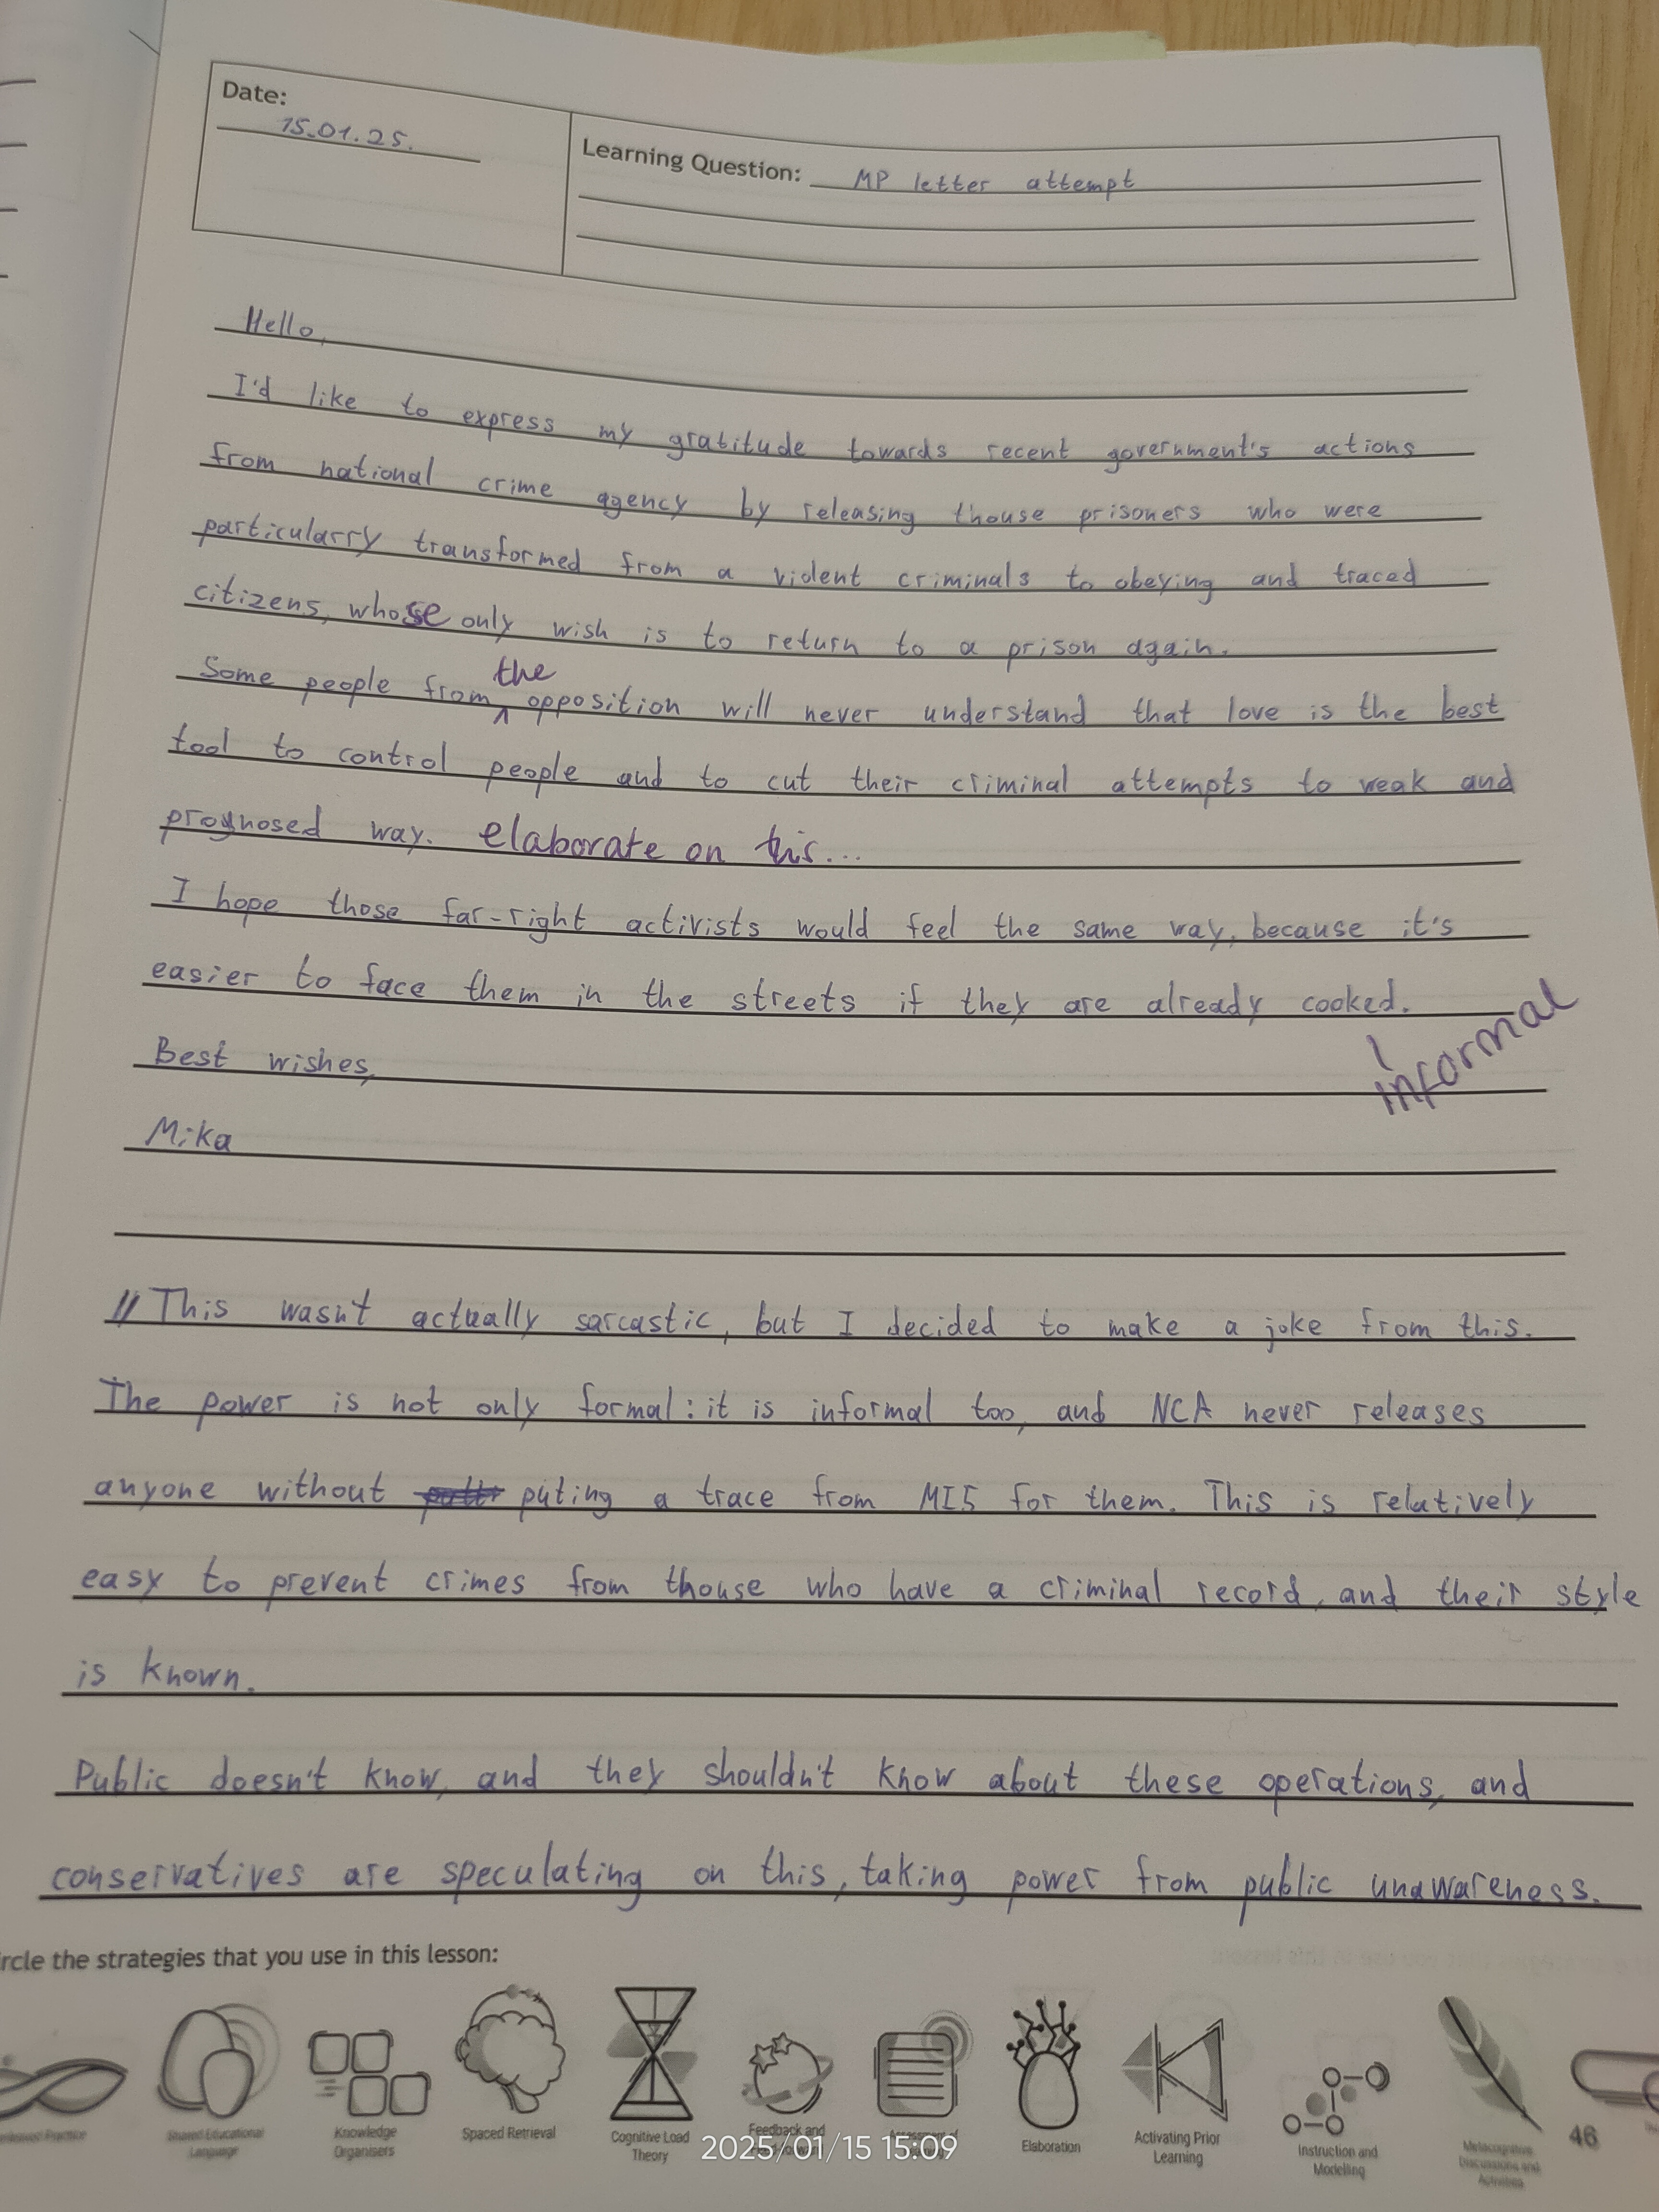 Date:
15.01.25.
Learning Question: MP letter attempt
Hello,
I'd like to express my gratitude towards recent government's actions
from national crime agency by releasing thouse prisoners who were
particularry transformed from a violent criminals to obeying and traced
citizens, whose only wish is to return to a prison again.
the
Some people from ^ opposition will never understand that love is the best
tool to control people and to cut their criminal attempts to weak and
prognosed way. elaborate on this...
I hope those far-right activists would feel the same way, because it's
easier to face them in the streets if they are already cooked.
informal
Best wishes,
Mika
// This wasn't actually sarcastic, but I decided to make a joke from this.
The power is not only formal: it is informal too, and NCA never releases
anyone without puting a trace from MI5 for them. This is relatively
easy to prevent crimes from thouse who have a criminal record, and their style
is known.
Public doesn't know, and they shouldn't know about these operations, and
conservatives are speculating on this, taking power from public unawareness.
rcle the strategies that you use in this lesson:
Shared Educational
Language
Knowledge
Organisers
Spaced Retrieval
Cognitive Load
Theory
Feedback and
Elaboration
Activating Prior
Learning
Instruction and
Modelling
Metacognitive
Discussions and
Activities
46
2025/01/15 15:09